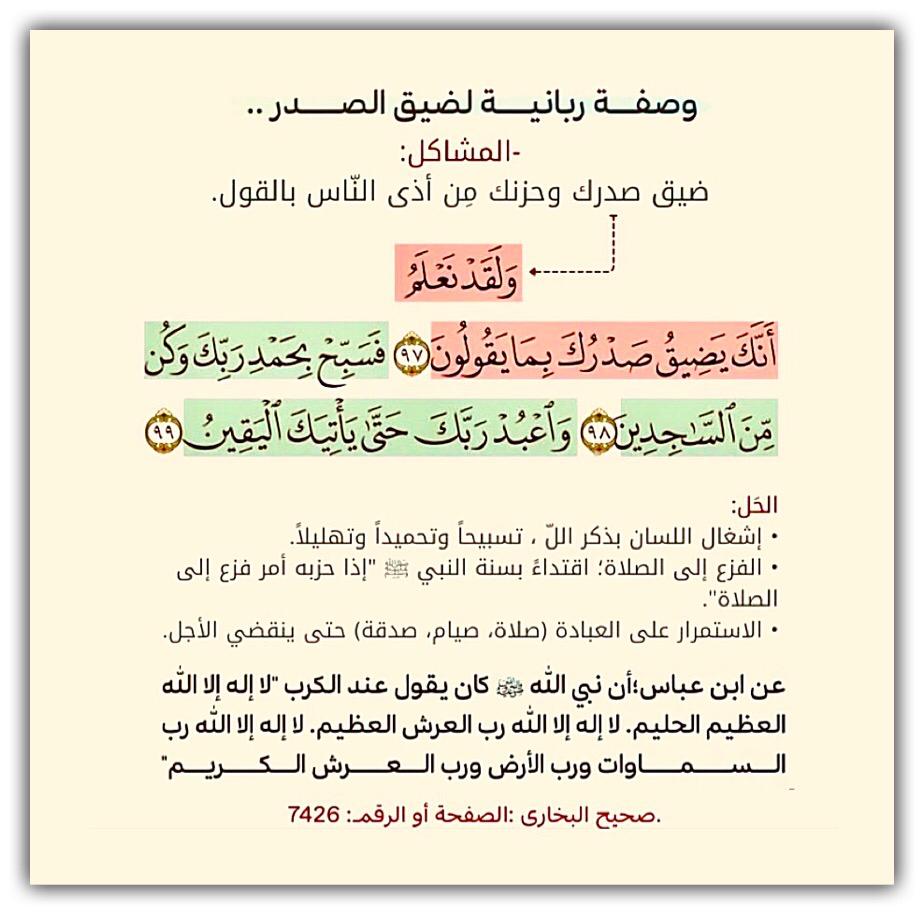 وصفة ربانية لضيق الصدر ..
-المشاكل:
ضيق صدرك وحزنك مِن أذى النّاس بالقول.
وَلَقَدْ نَعْلَمُ
أَنَّكَ يَضِيقُ صَدْرُكَ بِمَا يَقُولُونَ ٩٧ فَسَبِّحْ بِحَمْدِ رَبِّكَ وَكُن
مِّنَ ٱلسَّٰجِدِينَ ٩٨ وَٱعْبُدْ رَبَّكَ حَتَّىٰ يَأْتِيَكَ ٱلْيَقِينُ ٩٩
الحَل:
• إشغال اللسان بذكر اللّ ، تسبيحاً وتحميداً وتهليلاً.
• الفزع إلى الصلاة؛ اقتداءً بسنة النبي ﷺ "إذا حزبه أمر فزع إلى
الصلاة".
• الاستمرار على العبادة (صلاة، صيام، صدقة) حتى ينقضي الأجل.
عن ابن عباس؛أن نبي الله ﷺ كان يقول عند الكرب "لا إله إلا الله
العظيم الحليم. لا إله إلا الله رب العرش العظيم. لا إله إلا الله رب
السماوات ورب الأرض ورب العرش الكريم"
.صحيح البخارى :الصفحة أو الرقمـ: 7426